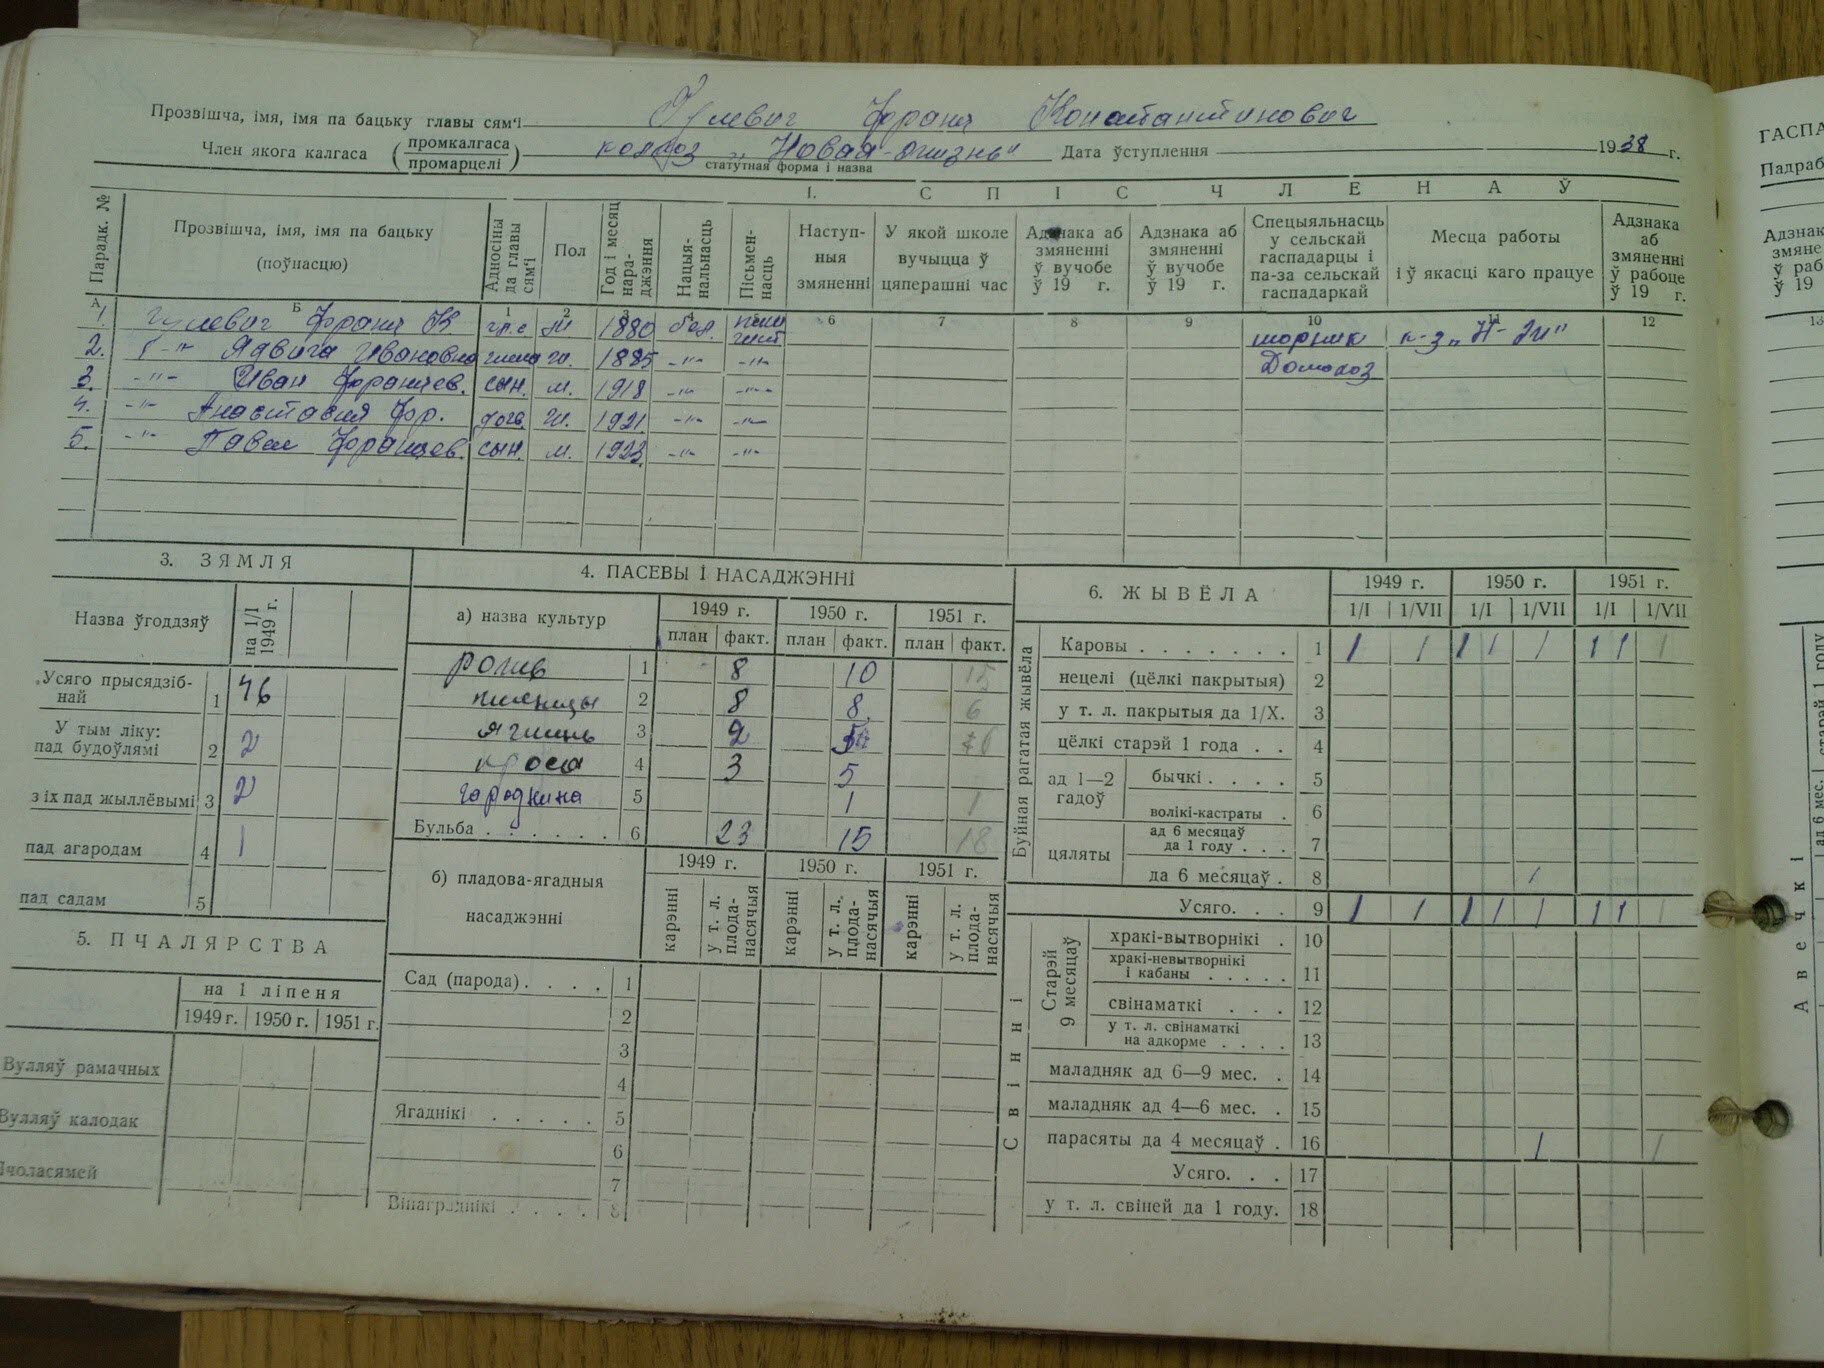 Прозвішча, імя, імя па бацьку главы сям'і Гулевич Франц Константинович
Член якога калгаса (промкалгаса промарцелі) колхоз „Новая жизнь" Дата ўступлення 1938 г.
статутная форма і назва
I. СПІС ЧЛЕНАЎ
Парадк. № | Прозвішча, імя, імя па бацьку (поўнасцю) | Адносіны да главы сям'і | Пол | Год і месяц нараджэння | Нацыянальнасць | Пісьменнасць | Наступныя змяненні | У якой школе вучыцца ў цяперашні час | Адзнака аб змяненні ў вучобе ў 19 г. | Адзнака аб змяненні ў вучобе ў 19 г. | Спецыяльнасць у сельскай гаспадарцы і па-за сельскай гаспадаркай | Месца работы і ў якасці каго працуе | Адзнака аб змяненні ў рабоце ў 19 г.
А Б 1 2 3 4 5 6 7 8 9 10 11 12
1. Гулевич Франц К. 1880 бел. шорник к-з „Н-Ж"
2. Г-" Ядвига Ивановна жена ж. 1885 -"- -"- Домохоз
3. -"- Иван Францев. сын. м. 1918 -"- -"-
4. -"- Анастасия Фр. доч. ж. 1921 -"- -"-
5. -"- Павел Францев. сын. м. 1923 -"- -"-
3. ЗЯМЛЯ
Назва ўгоддзяў | на 1/I 1949 г.
Усяго прысядзібнай 1 46
У тым ліку: пад будоўлямі 2 2
з іх пад жыллёвымі 3 2
пад агародам 4 1
пад садам 5
5. ПЧАЛЯРСТВА
на 1 ліпеня
1949 г. 1950 г. 1951 г.
Вулляў рамачных
Вулляў калодак
Пчоласямей
4. ПАСЕВЫ І НАСАДЖЭННІ
а) назва культур 1949 г. 1950 г. 1951 г.
план факт. план факт. план факт.
рожь 1 8 10 15
пшеницы 2 8 8 6
ячмень 3 2
проса 4 3 5
городнина 5 1 1
Бульба 6 23 15 18
б) пладова-ягадныя насаджэнні 1949 г. 1950 г. 1951 г.
карэнні | у т. л. плоданасячыя | карэнні | у т. л. плоданасячыя | карэнні | у т. л. плоданасячыя
Сад (парода) 1
2
3
4
Ягаднікі 5
6
7
Вінаграднікі 8
6. ЖЫВЁЛА 1949 г. 1950 г. 1951 г.
1/I 1/VII 1/I 1/VII 1/I 1/VII
Буйная рагатая жывёла
Каровы 1 1 1 1 1 1 1 1 1
нецелі (цёлкі пакрытыя) 2
у т. л. пакрытыя да 1/X. 3
цёлкі старэй 1 года 4
ад 1—2 гадоў
бычкі 5
волікі-кастраты 6
цяляты
ад 6 месяцаў да 1 году 7
да 6 месяцаў 8 1
Усяго 9 1 1 1 1 1 1 1 1
Свінні
Старэй 9 месяцаў
хракі-вытворнікі 10
хракі-невытворнікі і кабаны 11
свінаматкі 12
у т. л. свінаматкі на адкорме 13
маладняк ад 6—9 мес. 14
маладняк ад 4—6 мес. 15
парасяты да 4 месяцаў 16 1 1
Усяго 17
у т. л. свіней да 1 году. 18
ГАСПА
Падраб
Адзнак
змяне
ў раб
ў 19
13
Авечкі
ад 6 мес.
старэй 1 году